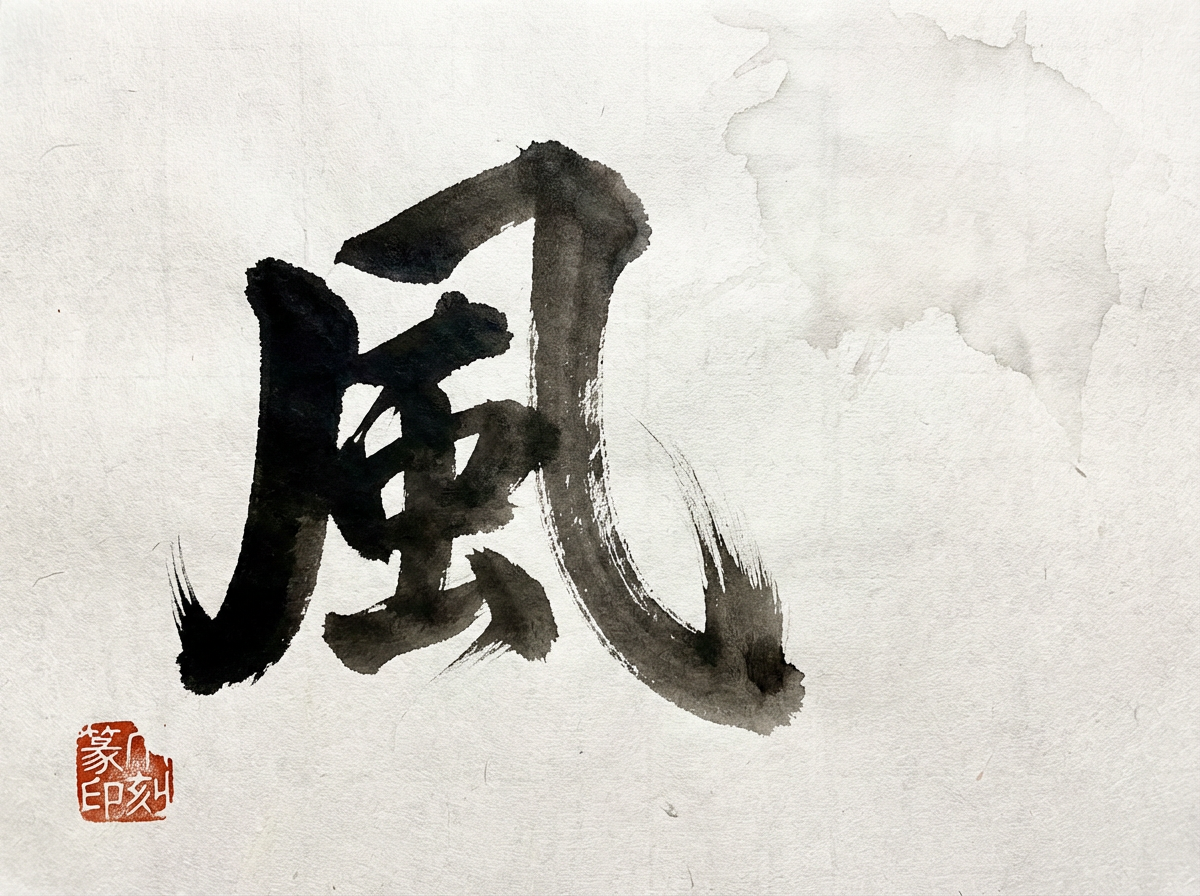 風
篆
印刻